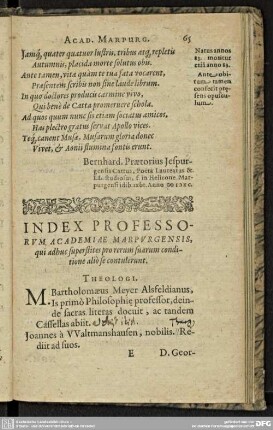 ACAD. MARPURG. 65
Jamq́, quater quatuor lustris, tribus atq́, repletis
Autumnis, placida morte solutus obis.
Ante tamen, vita quàm te tua fata vocarent,
Præsentem scribis non sine laude librum.
In quo doctores producis carmine vivo,
Qui benè de Catta promeruere schola.
Ad quos quum nunc sis etiam sociatus amicos,
Hac plectro gratus servat Apollo vices.
Teq́, canent Musæ. Musarum gloria donec
Vivet, & Aonii flumina fontis erunt.
Natus annos
83. moritur
Ante
tamen
confecit præ-
sens opuscu-
lum.
Bernhard. Prætorius Jespur-
gensis Cattus, Poëta Laureatus &
in Hessonne Mar-
purgensi
INDEX PROFESSO-
RVM ACADEMIAE MARPVRGENSIS,
qui adhuc superstites pro rerum suarum condi-
tione aliò se contulerunt.
THEOLOGI.
M. Bartholomæus Meyer Alsfeldianus,
Is primò Philosophię professor, dein-
de sacras literas docuit, ac tandem
Cassellas abiit.
Joannes à VValtmanshausen, nobilis. Re-
diit ad suos.
E D. Geor-